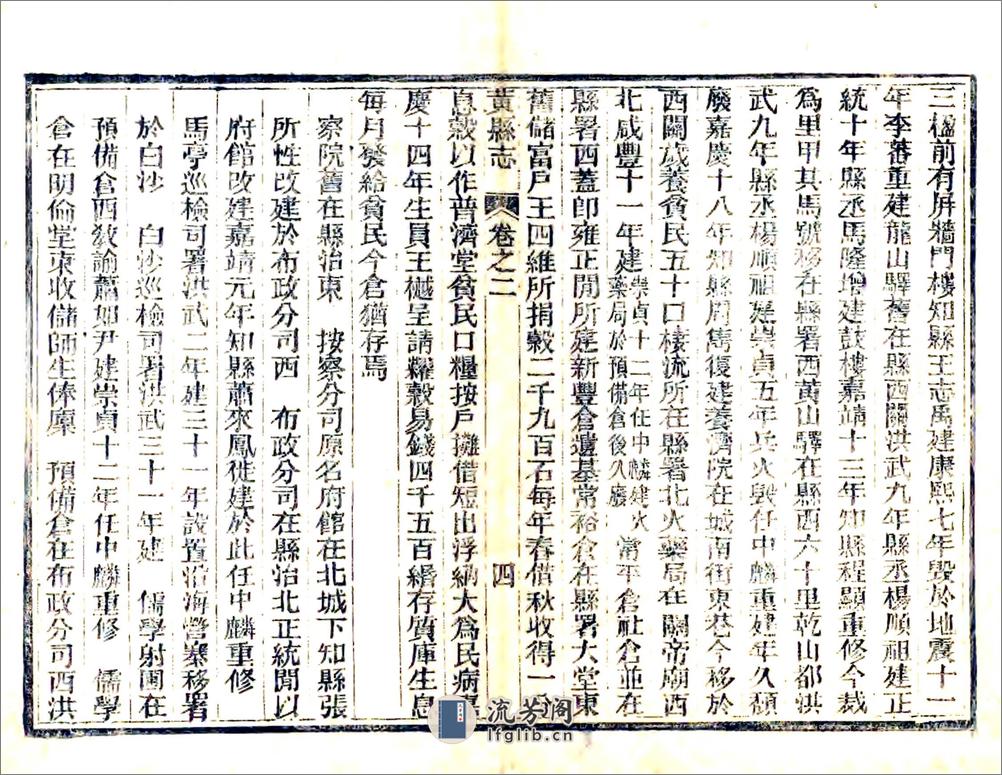 三楹前有屏牆門樓知縣王志禹建康熙七年毀於地震十一
年李蕃重建龍山驛舊在縣西關洪武九年縣丞楊順祖建正
統十年縣丞馬隆增建鼓樓嘉靖十三年知縣程顯重修今裁
為里甲其馬號移在縣署西黃山驛在縣西六十里乾山都洪
武九年縣丞楊順祖建崇貞五年兵火毀任中麟重建年久頹
廢嘉慶十八年知縣周雋復建養濟院在城南街東巷今移於
西關歲養貧民五十口棲流所在縣署北火藥局在關帝廟西
北咸豐十一年建崇貞十二年任中麟建火藥局於預備倉後久廢 常平倉社倉並在
縣署西蓋即雍正間所建新豐倉遺基常裕倉在縣署大堂東
舊儲富戶王四維所捐穀二千九百石每年春借秋收得一分
黃縣志 卷之二 四
息穀以作普濟堂貧民口糧按戶攤借短出浮納大為民病嘉
慶十四年生員王樾呈請糶穀易錢四千五百緡存質庫生息
每月發給貧民今倉猶存焉
察院舊在縣治東 按察分司原名府館在北城下知縣張
所性改建於布政分司西 布政分司在縣治北正統間以
府館改建嘉靖元年知縣蕭來鳳徙建於此任中麟重修
馬亭巡檢司署洪武二年建三十一年設置沿海營寨移署
於白沙 白沙巡檢司署洪武三十一年建 儒學射圃在
預備倉西敎諭蕭如尹建崇貞十二年任中麟重修 儒學
倉在明倫堂東收儲師生俸廩 預備倉在布政分司西洪
流芳阁
lfglib.cn